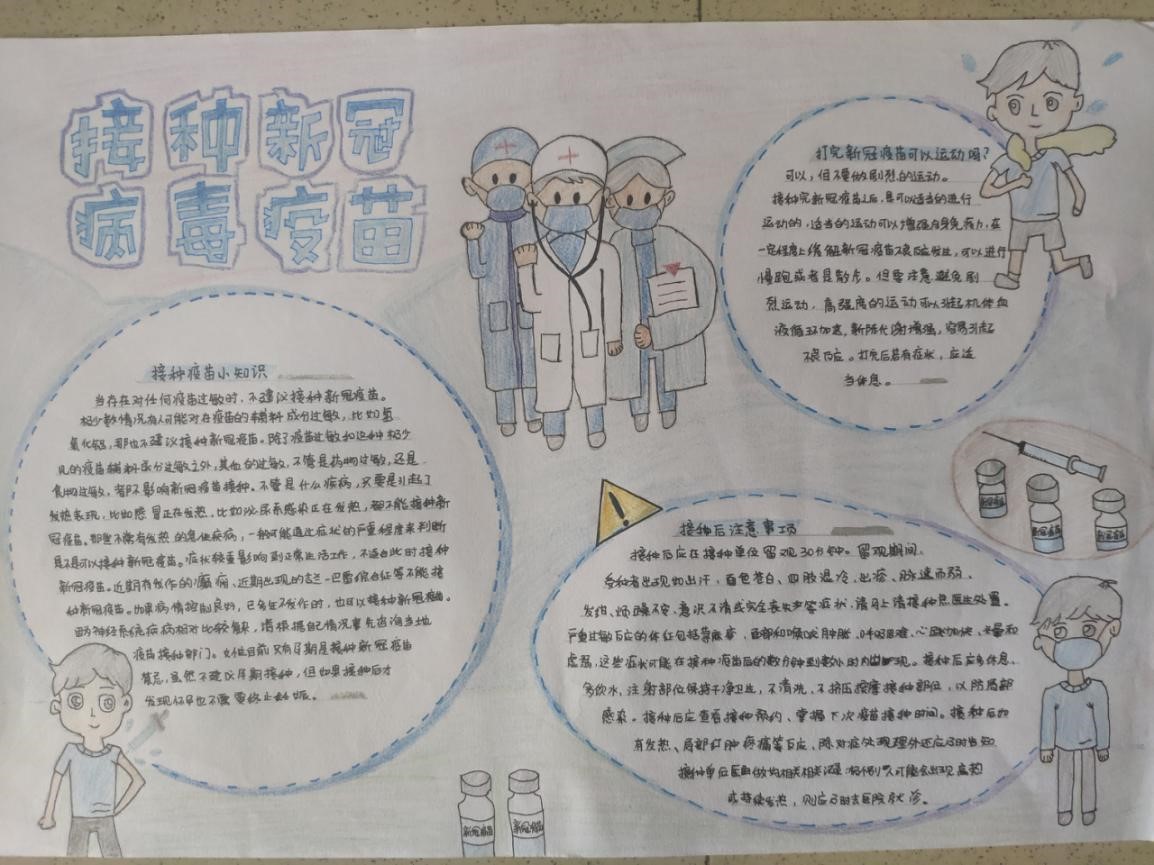 接种新冠
病毒疫苗
接种疫苗小知识
当存在对任何疫苗过敏时，不建议接种新冠疫苗。
极少数情况有人可能对在疫苗的辅料成分过敏，比如氢
氧化铝，那也不建议接种新冠疫苗。除了疫苗过敏和这种极少
见的疫苗辅料成分过敏之外，其他的过敏，不管是药物过敏，还是
食物过敏，都不影响新冠疫苗接种。不管是什么疾病，只要是引起了
发热表现，比如感冒正在发热，比如泌尿系感染正在发热，都不能接种新
冠疫苗。那些不常有发热的急性疾病，一般可能通过症状的严重程度来判断
是不是可以接种新冠疫苗。症状较重影响到正常生活工作，不适合此时接种
新冠疫苗。近期有发作的癫痫、近期出现的吉兰-巴雷综合征等不能接
种新冠疫苗。如果病情控制良好，已多年不发作的，也可以接种新冠疫苗。
神经系统疾病相对比较复杂，请根据自己情况事先咨询当地
疫苗接种部门。女性目前只有孕期是接种新冠疫苗
禁忌，虽然不建议孕期接种，但如果接种后才
发现怀孕也不需要终止妊娠。
打完新冠疫苗可以运动吗？
可以，但不要做剧烈的运动。
接种完新冠疫苗之后，是可以适当的进行
运动的，适当的运动可以增强自身免疫力，在
一定程度上缓解新冠疫苗不良反应发生，可以进行
慢跑或者是散步。但要注意避免剧
烈运动，高强度的运动可以引起机体血
液循环加速，新陈代谢增强，容易引起
不良反应。打完后若有症状，应适
当休息。
新冠疫苗
新冠疫苗
新冠疫苗
接种后注意事项
接种后应在接种单位留观30分钟。留观期间、
受种者出现如出汗，面色苍白、四肢湿冷、出疹、脉速而弱、
发绀、烦躁不安、意识不清或完全丧失等症状，请马上请接种点医生处置。
严重过敏反应的体征包括荨麻疹，面部和喉咙肿胀，呼吸困难、心跳加快、头晕和
虚弱，这些症状可能在接种疫苗后的数分钟到数小时内出现。接种后应多休息、
多饮水，注射部位保持干净卫生，不清洗、不挤压按摩接种部位，以防局部
感染。接种后应查看接种预约、掌握下次疫苗接种时间。接种后如
有发热、局部红肿疼痛等反应、除对症处理外还应及时告知
接种单位医生做好相关 个别人可能会出现高热
或持续发热，则应及时去医院就诊。
新冠疫苗
新冠疫苗